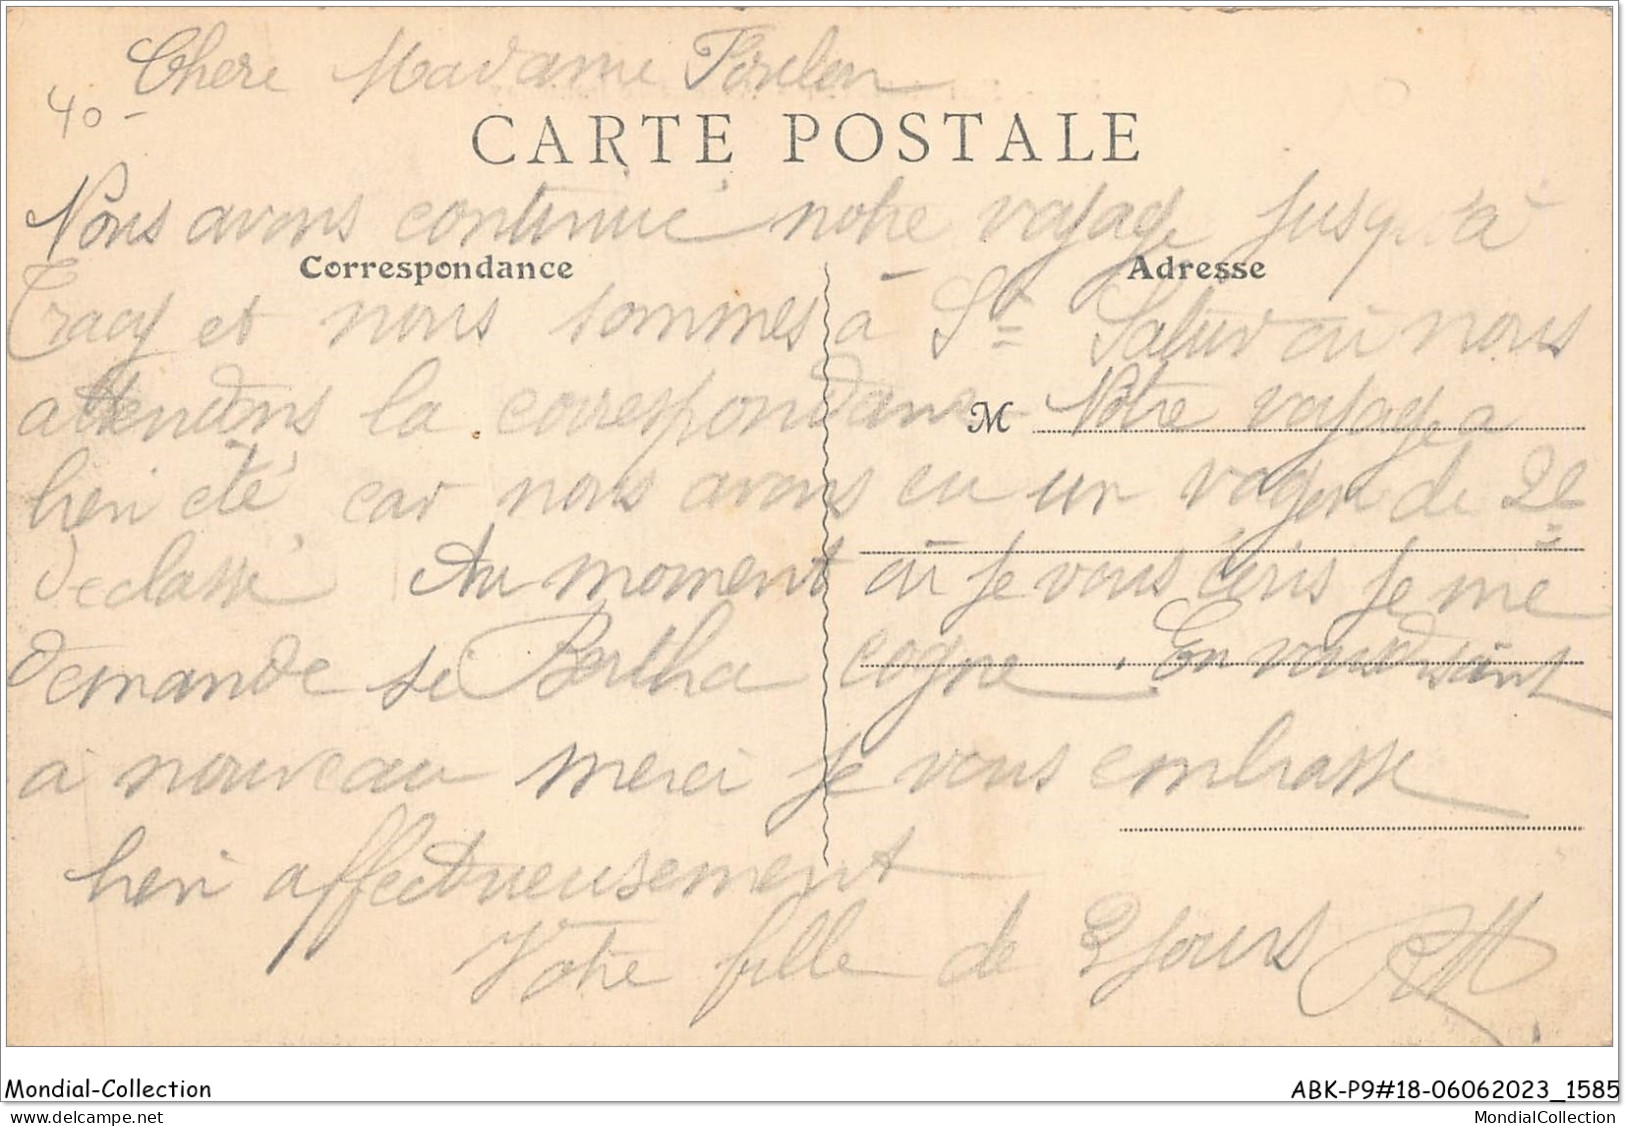 Chere Madame
40-
CARTE POSTALE
Nous avons continué notre voyage jusqu'à
Correspondance
Adresse
Tracy et nous sommes à St Satur où nous
attendons la correspondance Notre voyage a
M
bien été car nous avons eu un vagon de 2e
declasse Au moment où je vous écris je me
demande si Bertha cogne. En vous disant
a nouveau merci je vous embrasse
bien affectueusement
Votre fille de 2 jours
RM
Mondial-Collection
ABK-P9#18-06062023_1585
www.delcampe.net
MondialCollection